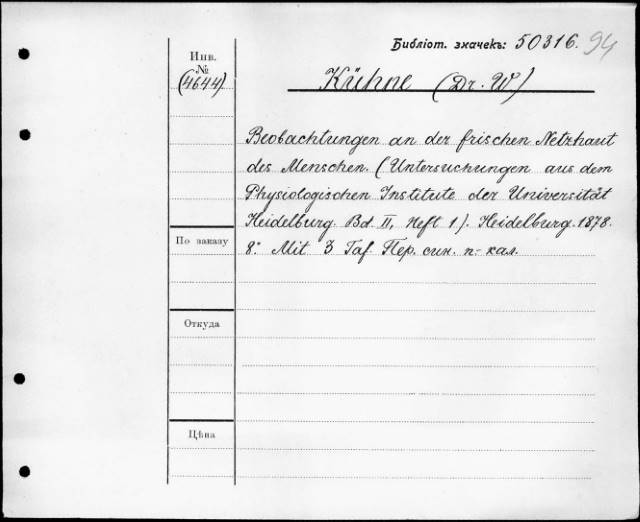 Библіот. значекъ: 50316. 94
Инв.
№
(4644)
Kühne (Dr. W)
Beobachtungen an der frischen Netzhaut
des Menschen. (Untersuchungen aus dem
Physiologischen Institute der Universität
Heidelburg. Bd. II, Heft 1). Heidelburg. 1878.
8º. Mit 3 Taf. Пер. син. п.-кал.
По заказу
Откуда
Цѣна